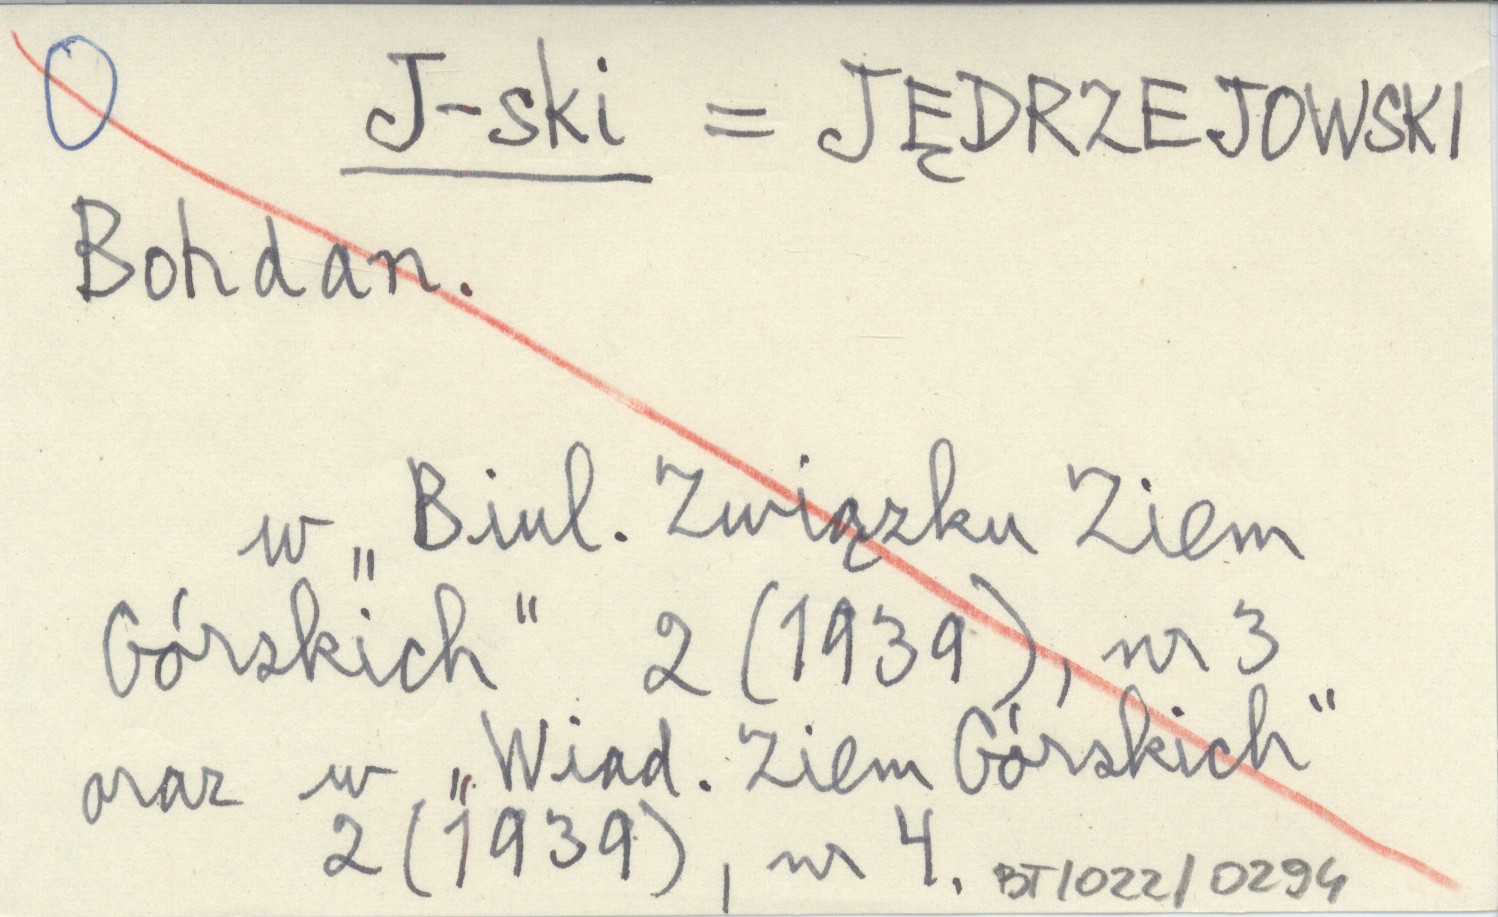 O J-ski = JĘDRZEJOWSKI
Bohdan.
w „Biul. Związku Ziem
Górskich" 2 (1939), nr 3
oraz w „Wiad. Ziem Górskich"
2 (1939), nr 4.
BT/022/0294